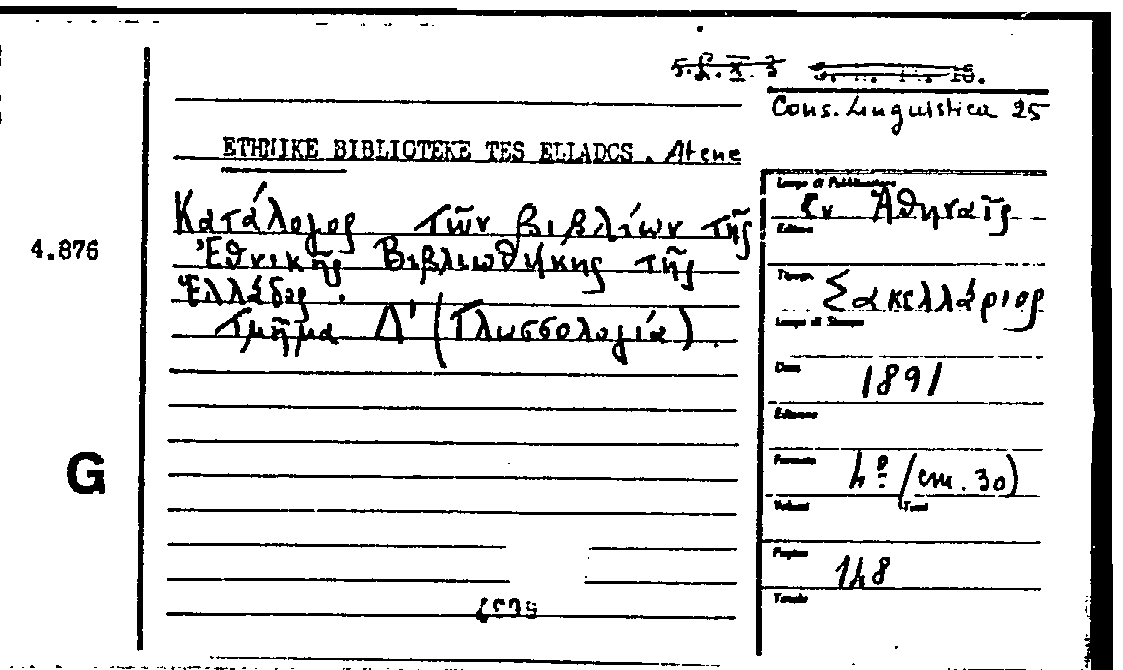 5.L.X.3
Cons. Linguistica 25
ETHNIKE BIBLIOTEKE TES ELLADOS. Atene
Κατάλογος τῶν βιβλίων τῆς
Ἐθνικῆς Βιβλιωθήκης τῆς
Ἑλλάδος.
Τμῆμα Δ' (Γλωσσολογία).
4.876
G
Luogo di Pubblicazione
Ἐν Ἀθηναῖς
Editore
Tipogr.
Σακελλάριος
Luogo di Stampa
Data
1891
Edizione
Formato
4º (cm. 30)
Volumi
Tomi
Pagine
148
Tavole